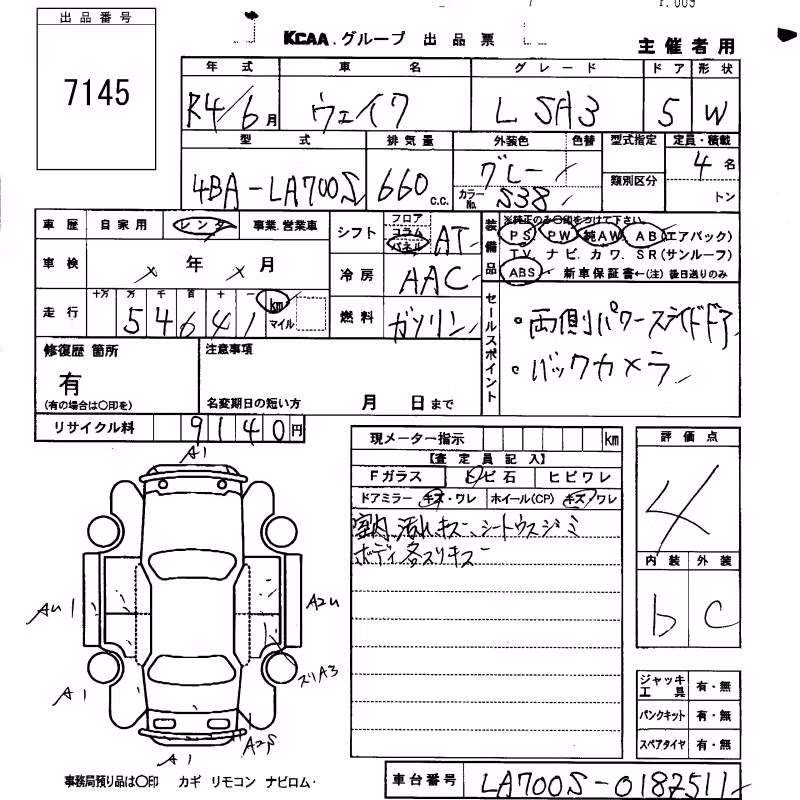 出品番号
7145
KCAA グループ 出品票
主催者用
年式 車名 グレード ドア 形状
R4/6月 ウェイク L SAⅢ 5 W
型式 排気量 外装色 色替 型式指定 定員・積載
4BA-LA700S 660 c.c. グレー カラーNo. S38 類別区分 4名 トン
車歴 自家用 レンタ 事業.営業車
シフト フロア コラム パネル AT
装備品 ※純正のみ○印をつけて下さい。
PS. PW 純AW. AB(エアバッグ)
TV. ナビ. カワ. SR(サンルーフ)
ABS 新車保証書←(注)後日送りのみ
車検 年 月
冷房 AAC
走行 十万 万 千 百 十 一 km マイル
54641
燃料 ガソリン
セールスポイント
・両側パワースライドドア
・バックカメラ
修復歴 箇所 注意事項
有
(有の場合は○印を) 名変期日の短い方 月 日まで
リサイクル料 9140円
現メーター指示 km
【査定員記入】
Fガラス トビ石 ヒビワレ
ドアミラー キズ・ワレ ホイール(CP) キズ/ワレ
室内 汚れ、キズ、シートウスジミ
ボディ各スリキズ
評価点
4
内装 外装
b C
A1
AU
A2U
スリA3
A1
A2S
A1
ジャッキ工具 有・無
パンクキット 有・無
スペアタイヤ 有・無
事務局預り品は○印 カギ リモコン ナビロム・
車台番号 LA700S-0187511